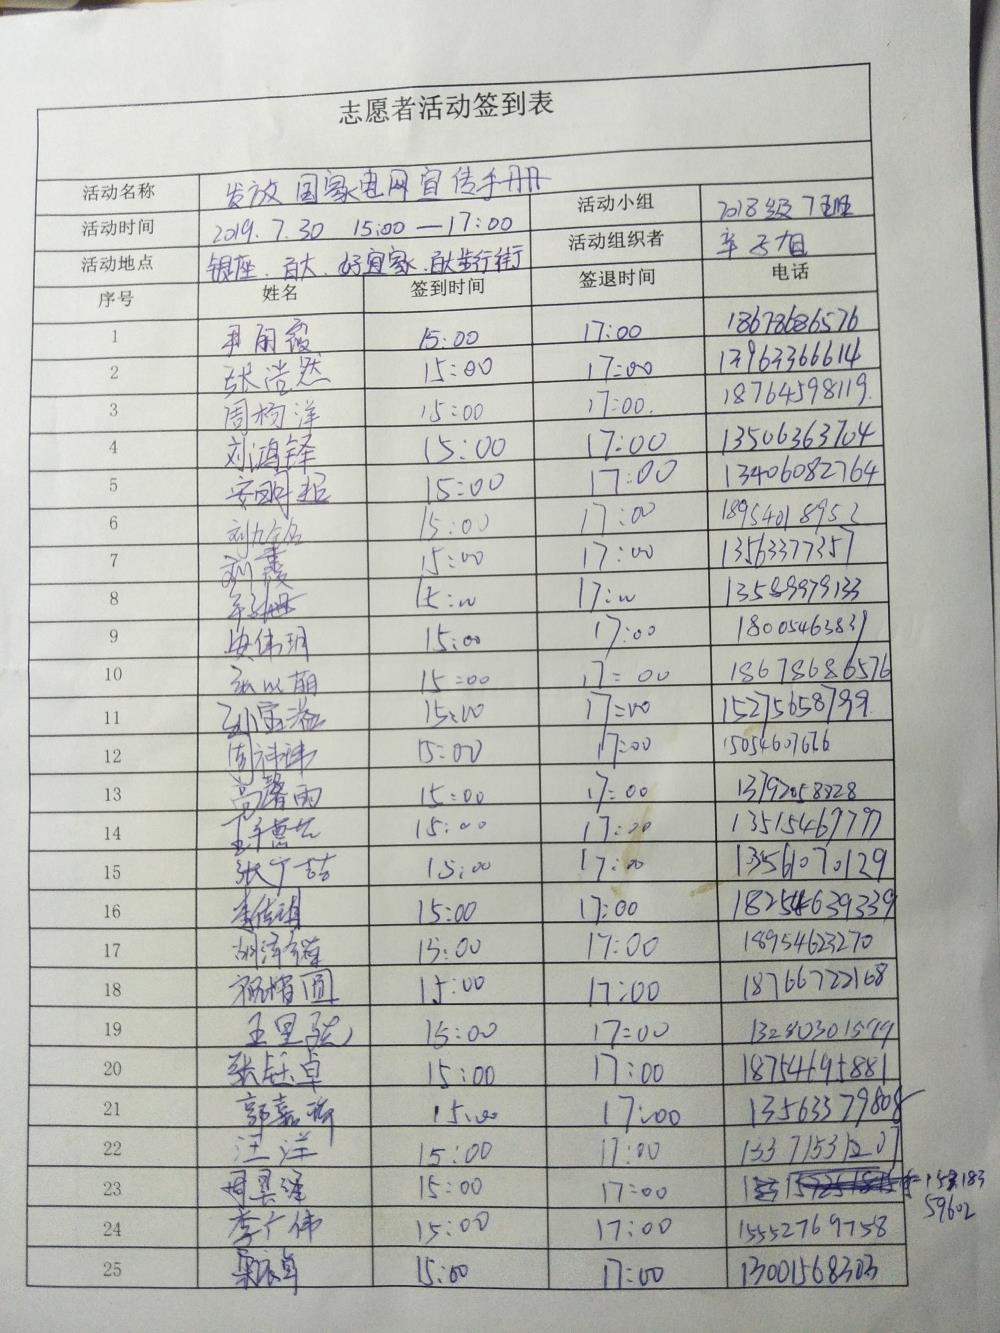 志愿者活动签到表
活动名称 发放国家电网宣传手册 活动小组 2018级7班
活动时间 2019.7.30 15:00—17:00 活动组织者
活动地点 银座.百大.好宜家.百大步行街
序号 姓名 签到时间 签退时间 电话
1 15:00 17:00 18678686576
2 张浩然 15:00 17:00 13963366614
3 周杨洋 15:00 17:00. 18764598119.
4 刘鸿铎 15:00 17:00 13506363704
5 15:00 17:00 13406082764
6 15:00 17:00 18954018952
7 15:00 17:00 13563377357
8 15:00 17:00 13589979133
9 安伟玥 15:00 17:00 18005463831
10 15:00 17:00 18678686576
11 15:00 17:00 15275658799.
12 周祎玮 15:00 17:00
13 高馨雨 15:00 17:00 13792058828
14 15:00 17:00
15 15:00 17:00 13561070129
16 15:00 17:00 18254639339
17 15:00 17:00 18954623270
18 15:00 17:00 18766722168
19 15:00 17:00
20 张钰卓 15:00 17:00 18754695881
21 郭嘉 15:00 17:00 13563379808
22 汪洋 15:00 17:00 13371531207
23 15:00 17:00
59602
24 李广伟 15:00 17:00 15552769758
25 15:00 17:00 13001568303